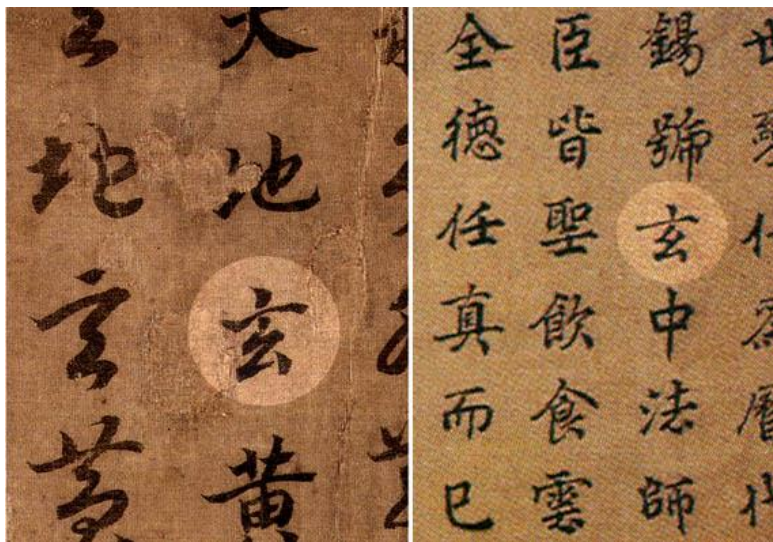 天地玄黄
地玄黄
錫號玄中法師
臣皆聖飲食雲
全徳任真而已